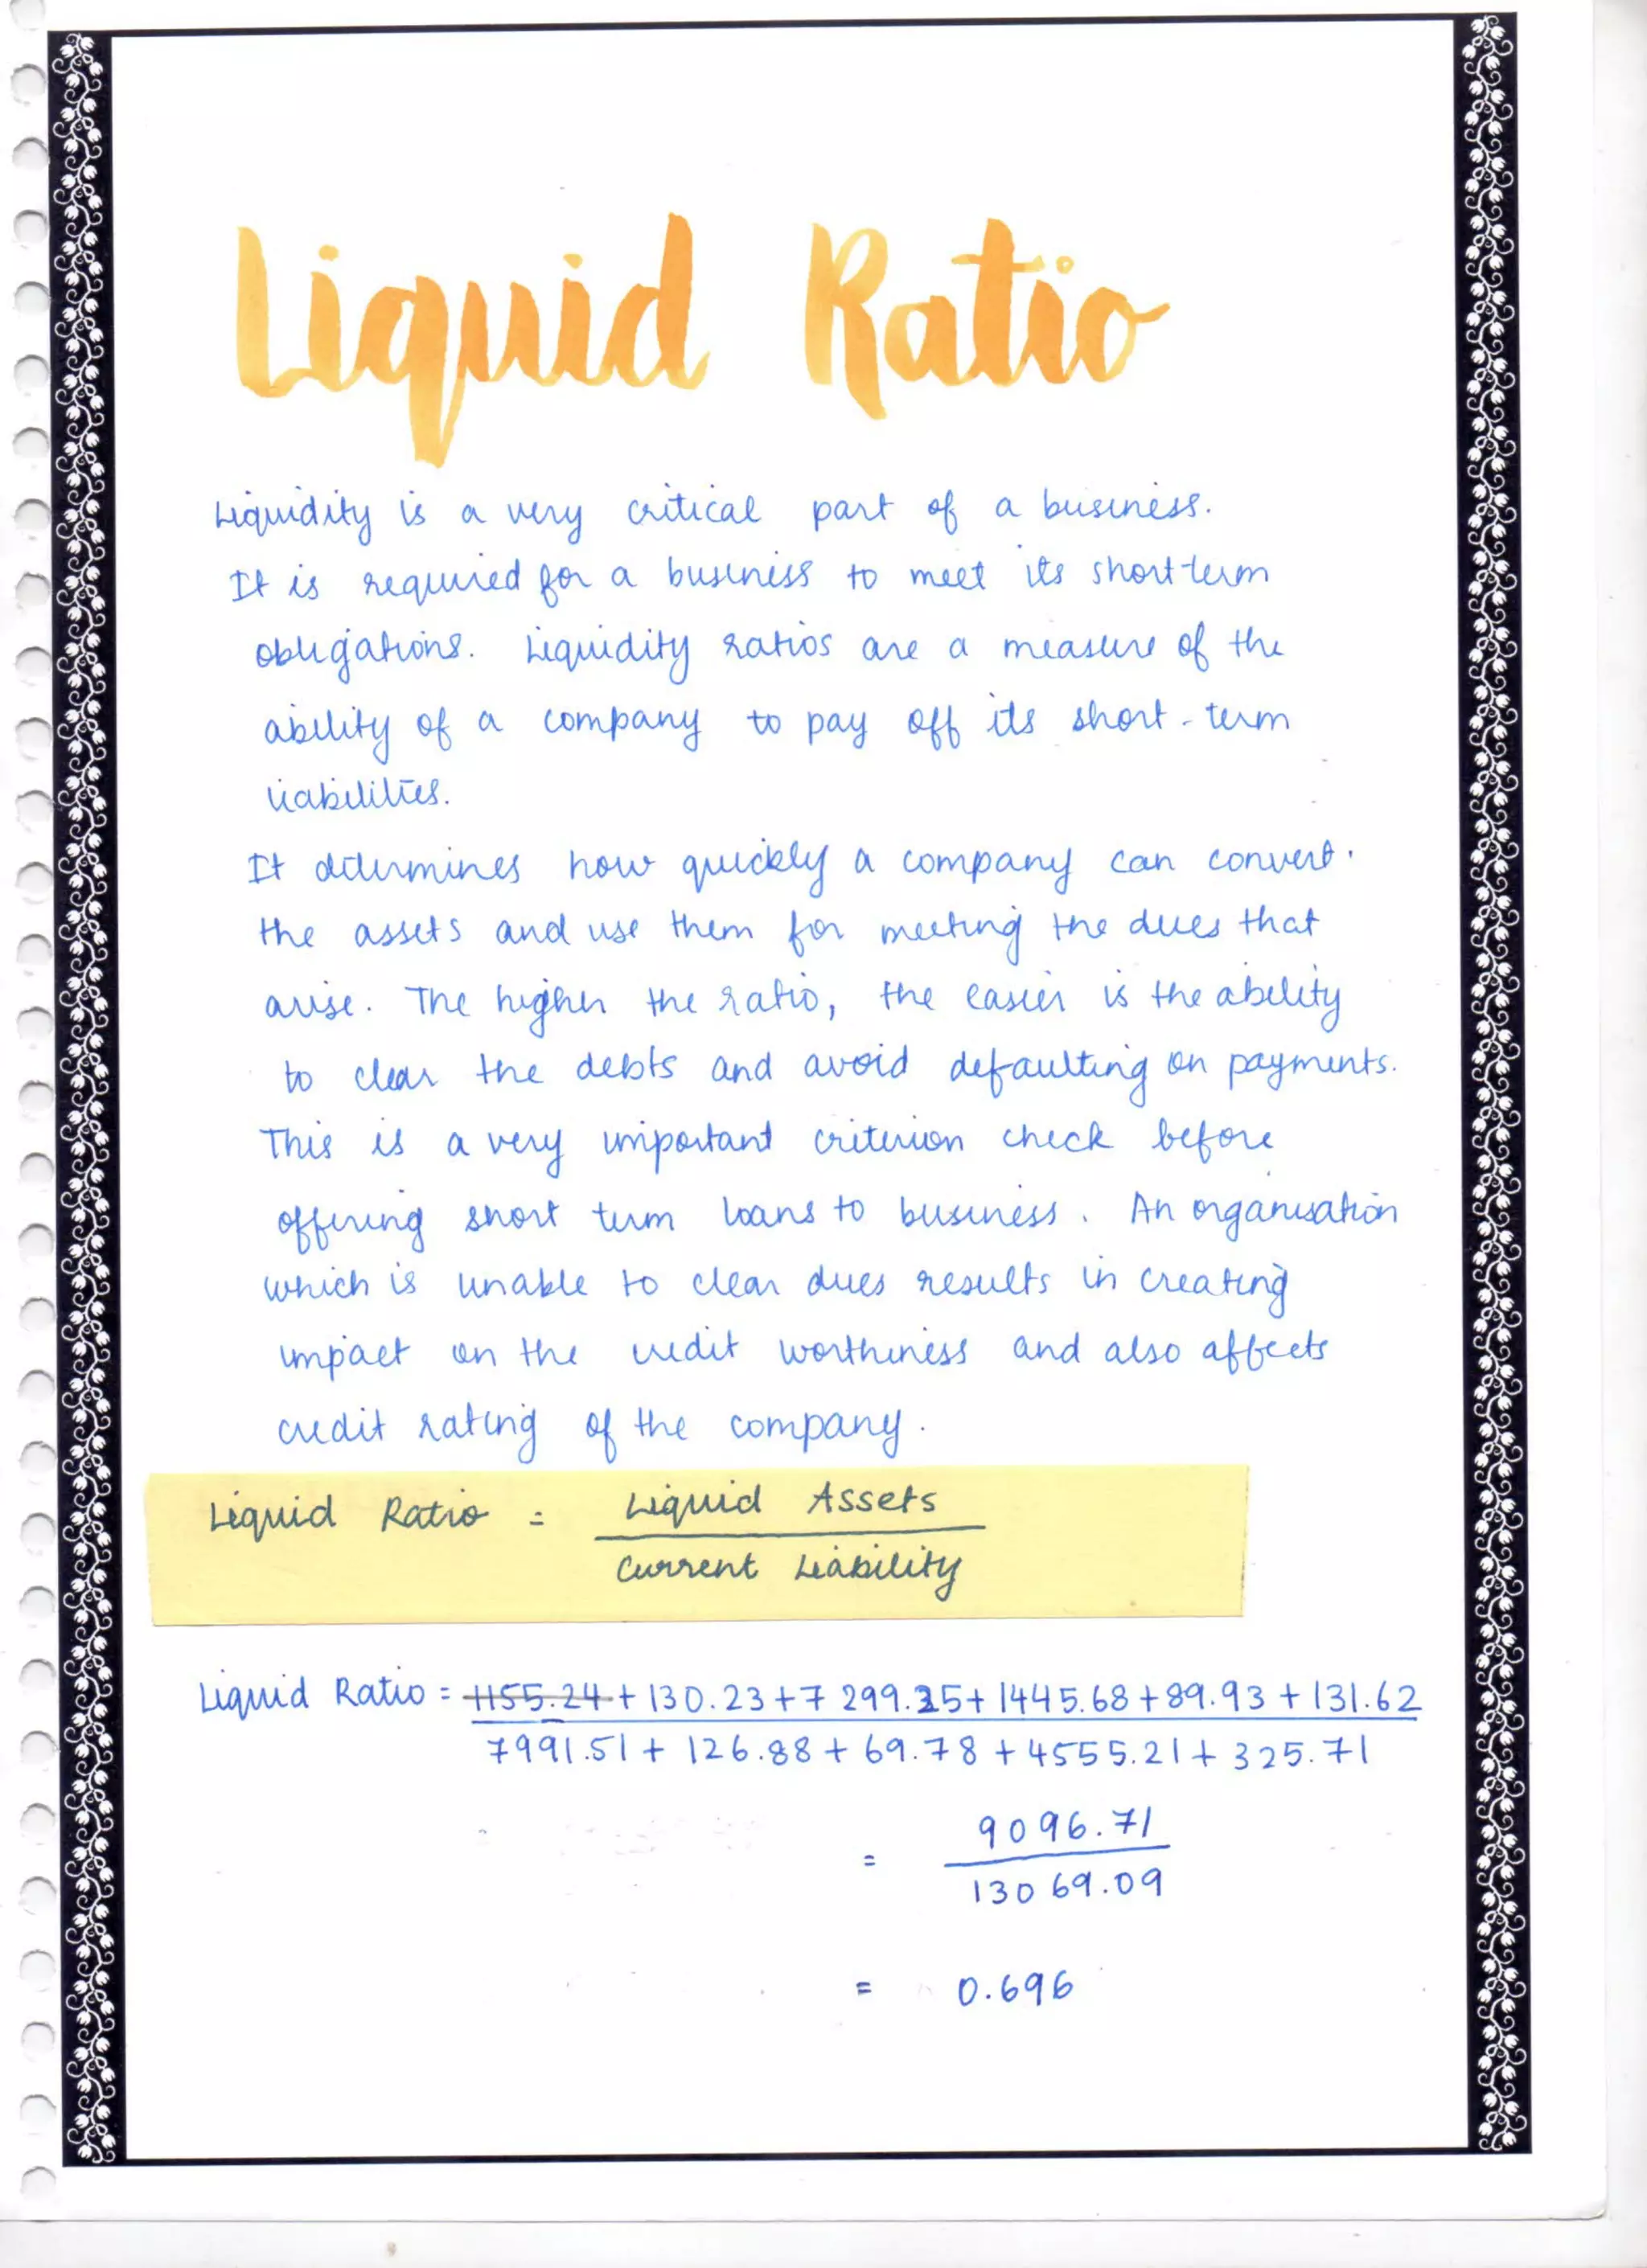 Liquid Ratio
Liquidity is a very critical part of a business.
It is required for a business to meet its short-term
obligations. Liquidity ratios are a measure of the
ability of a company to pay off its short-term
liabilities.
It determines how quickly a company can convert
the assets and use them for meeting the dues that
arise. The higher the ratio, the easier is the ability
to clear the debts and avoid defaulting on payments.
This is a very important criterion check before
offering short term loans to business. An organisation
which is unable to clear dues results in creating
impact on the credit worthiness and also affects
credit rating of the company.
Liquid Ratio = Liquid Assets
Current Liability
Liquid Ratio = 1155.24 + 130.23 + 7 299.25 + 1445.68 + 89.93 + 131.62
7991.51 + 126.88 + 69.78 + 4555.21 + 325.71
= 9096.71
13069.09
= 0.696